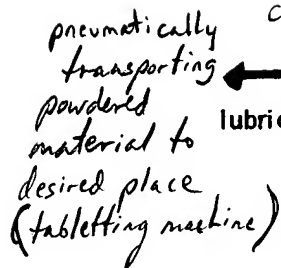 pneumatically
transporting
powdered
material to
desired place
(tabletting machine)